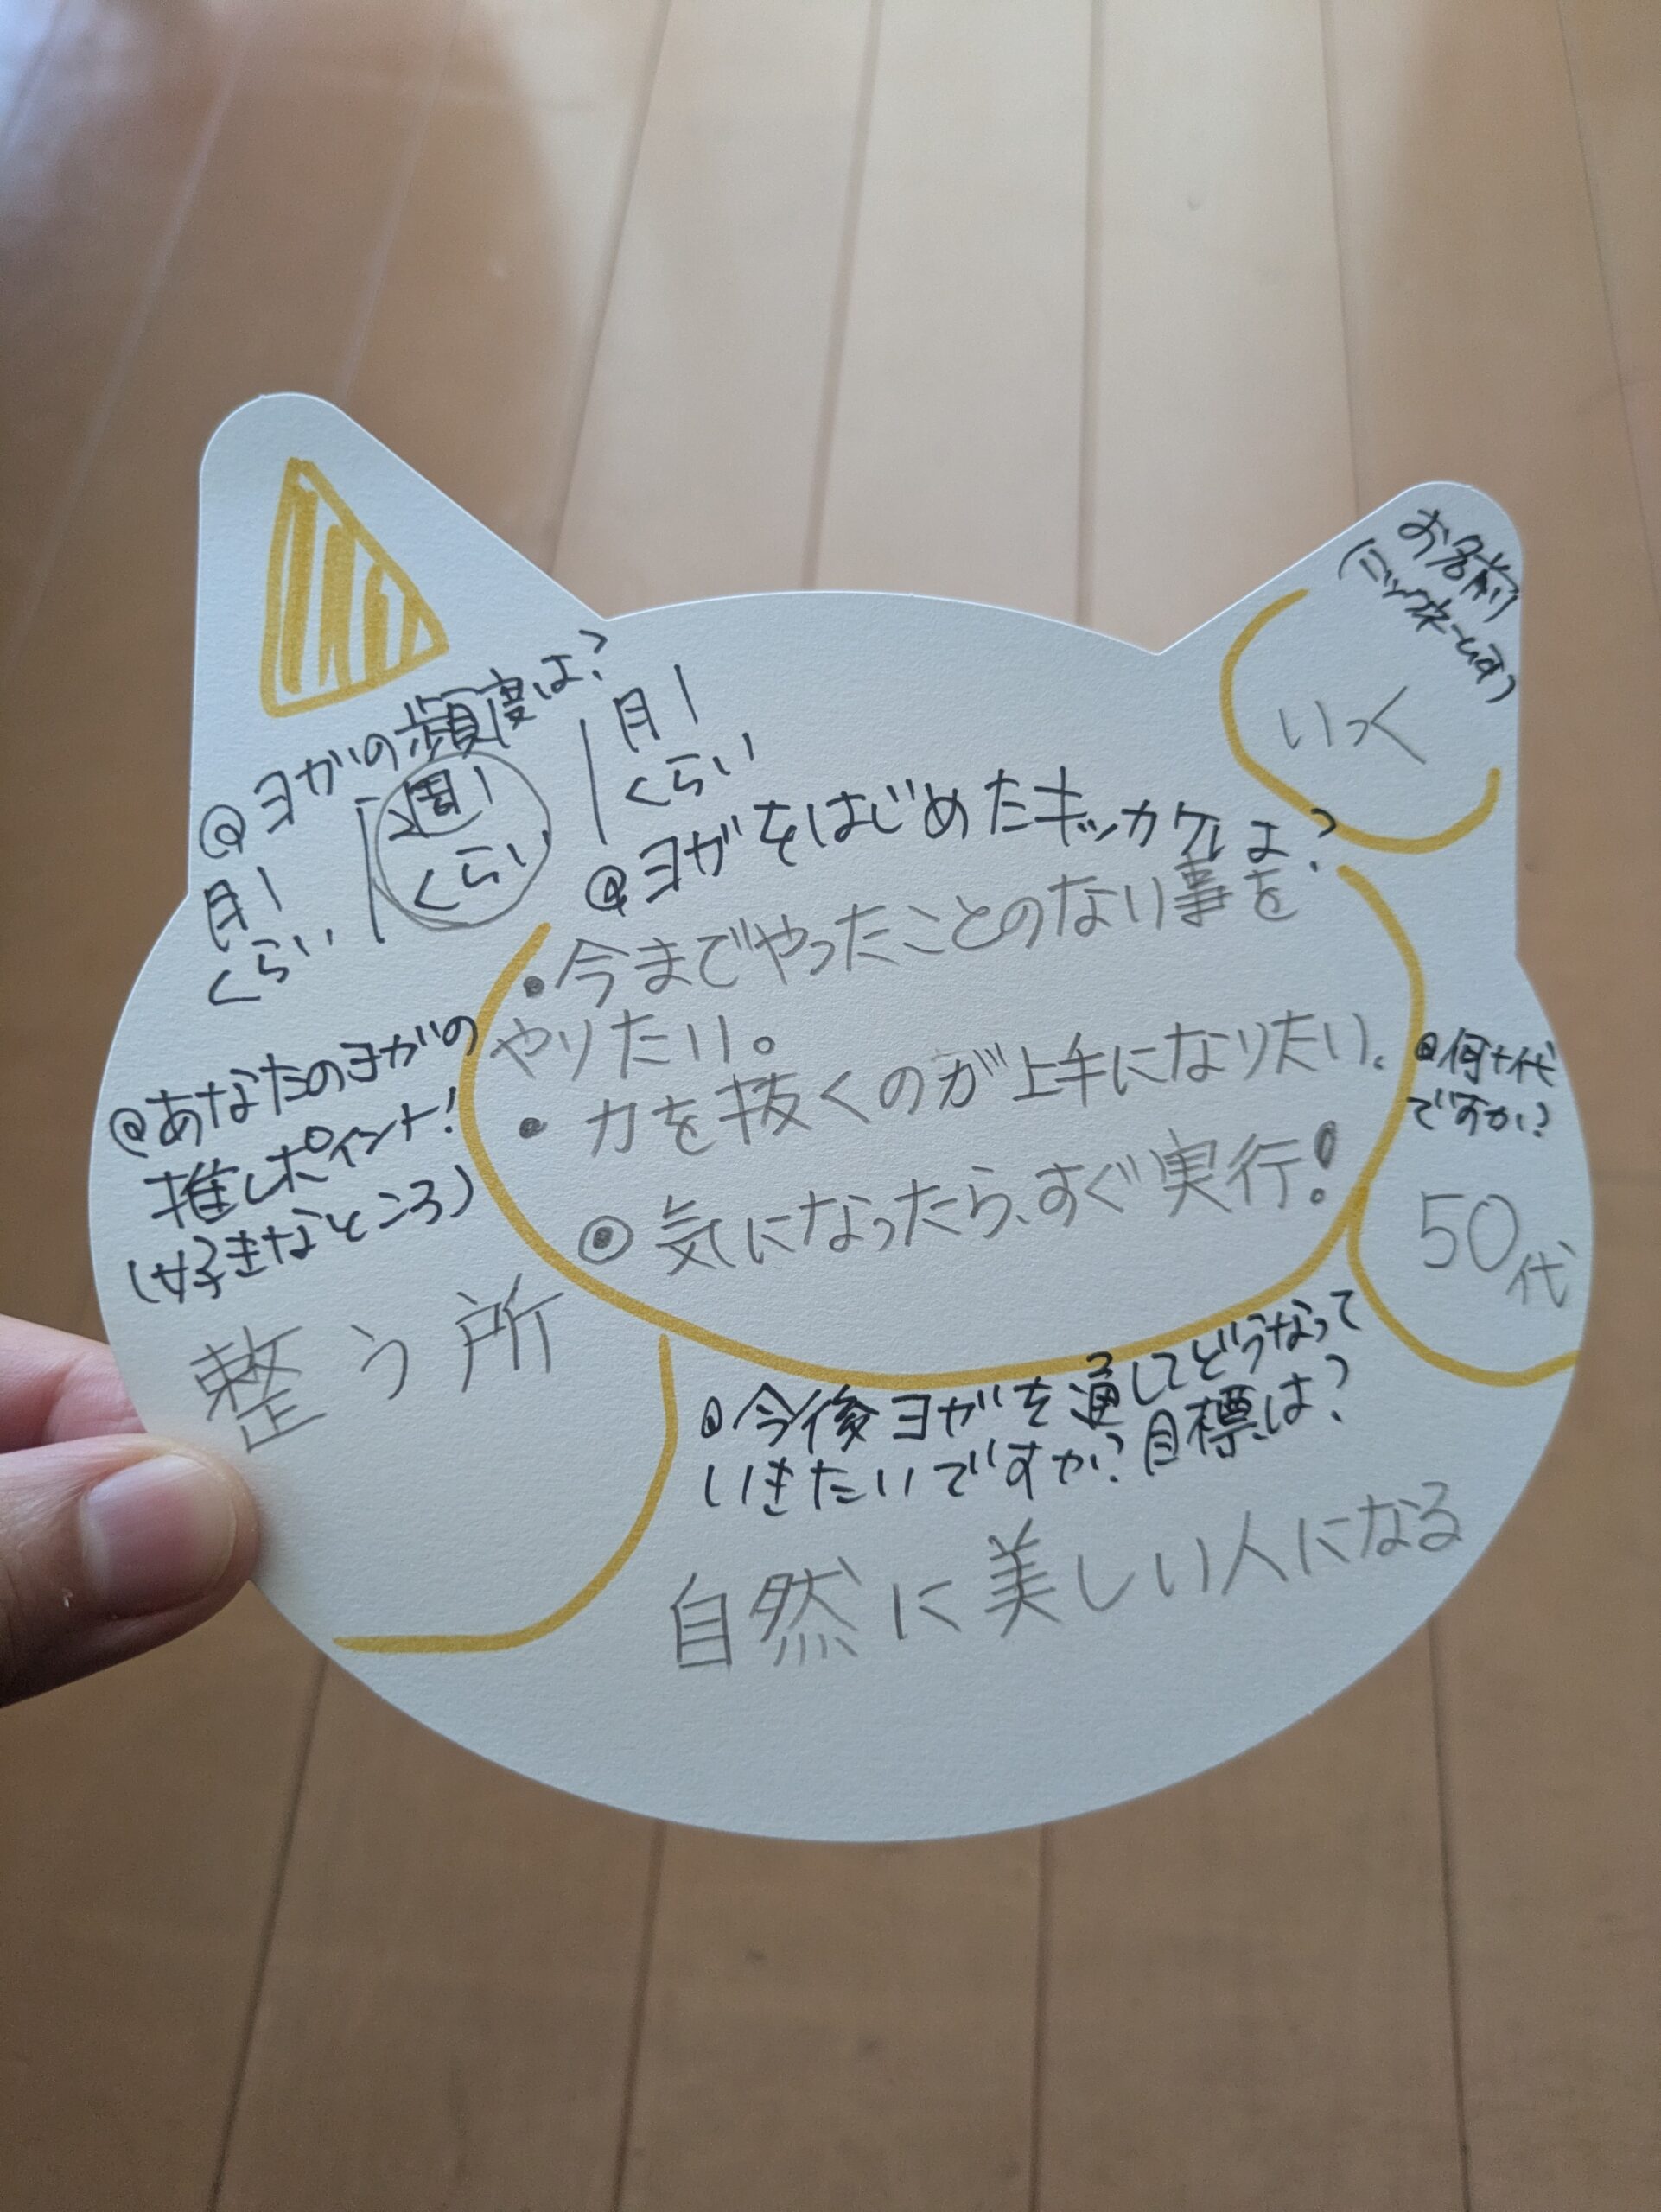 お名前
(ニックネーム可)
いっく
@ヨガの頻度は?
月1
くらい
週1
くらい
月1
くらい
@ヨガをはじめたキッカケは?
・今までやったことのない事を
やりたい。
・力を抜くのが上手になりたい。
◎気になったら、すぐ実行!
@何十代
ですか?
50代
@あなたのヨガの
推しポイント!
(好きなところ)
整う所
@今後ヨガを通してどうなって
いきたいですか?目標は?
自然に美しい人になる